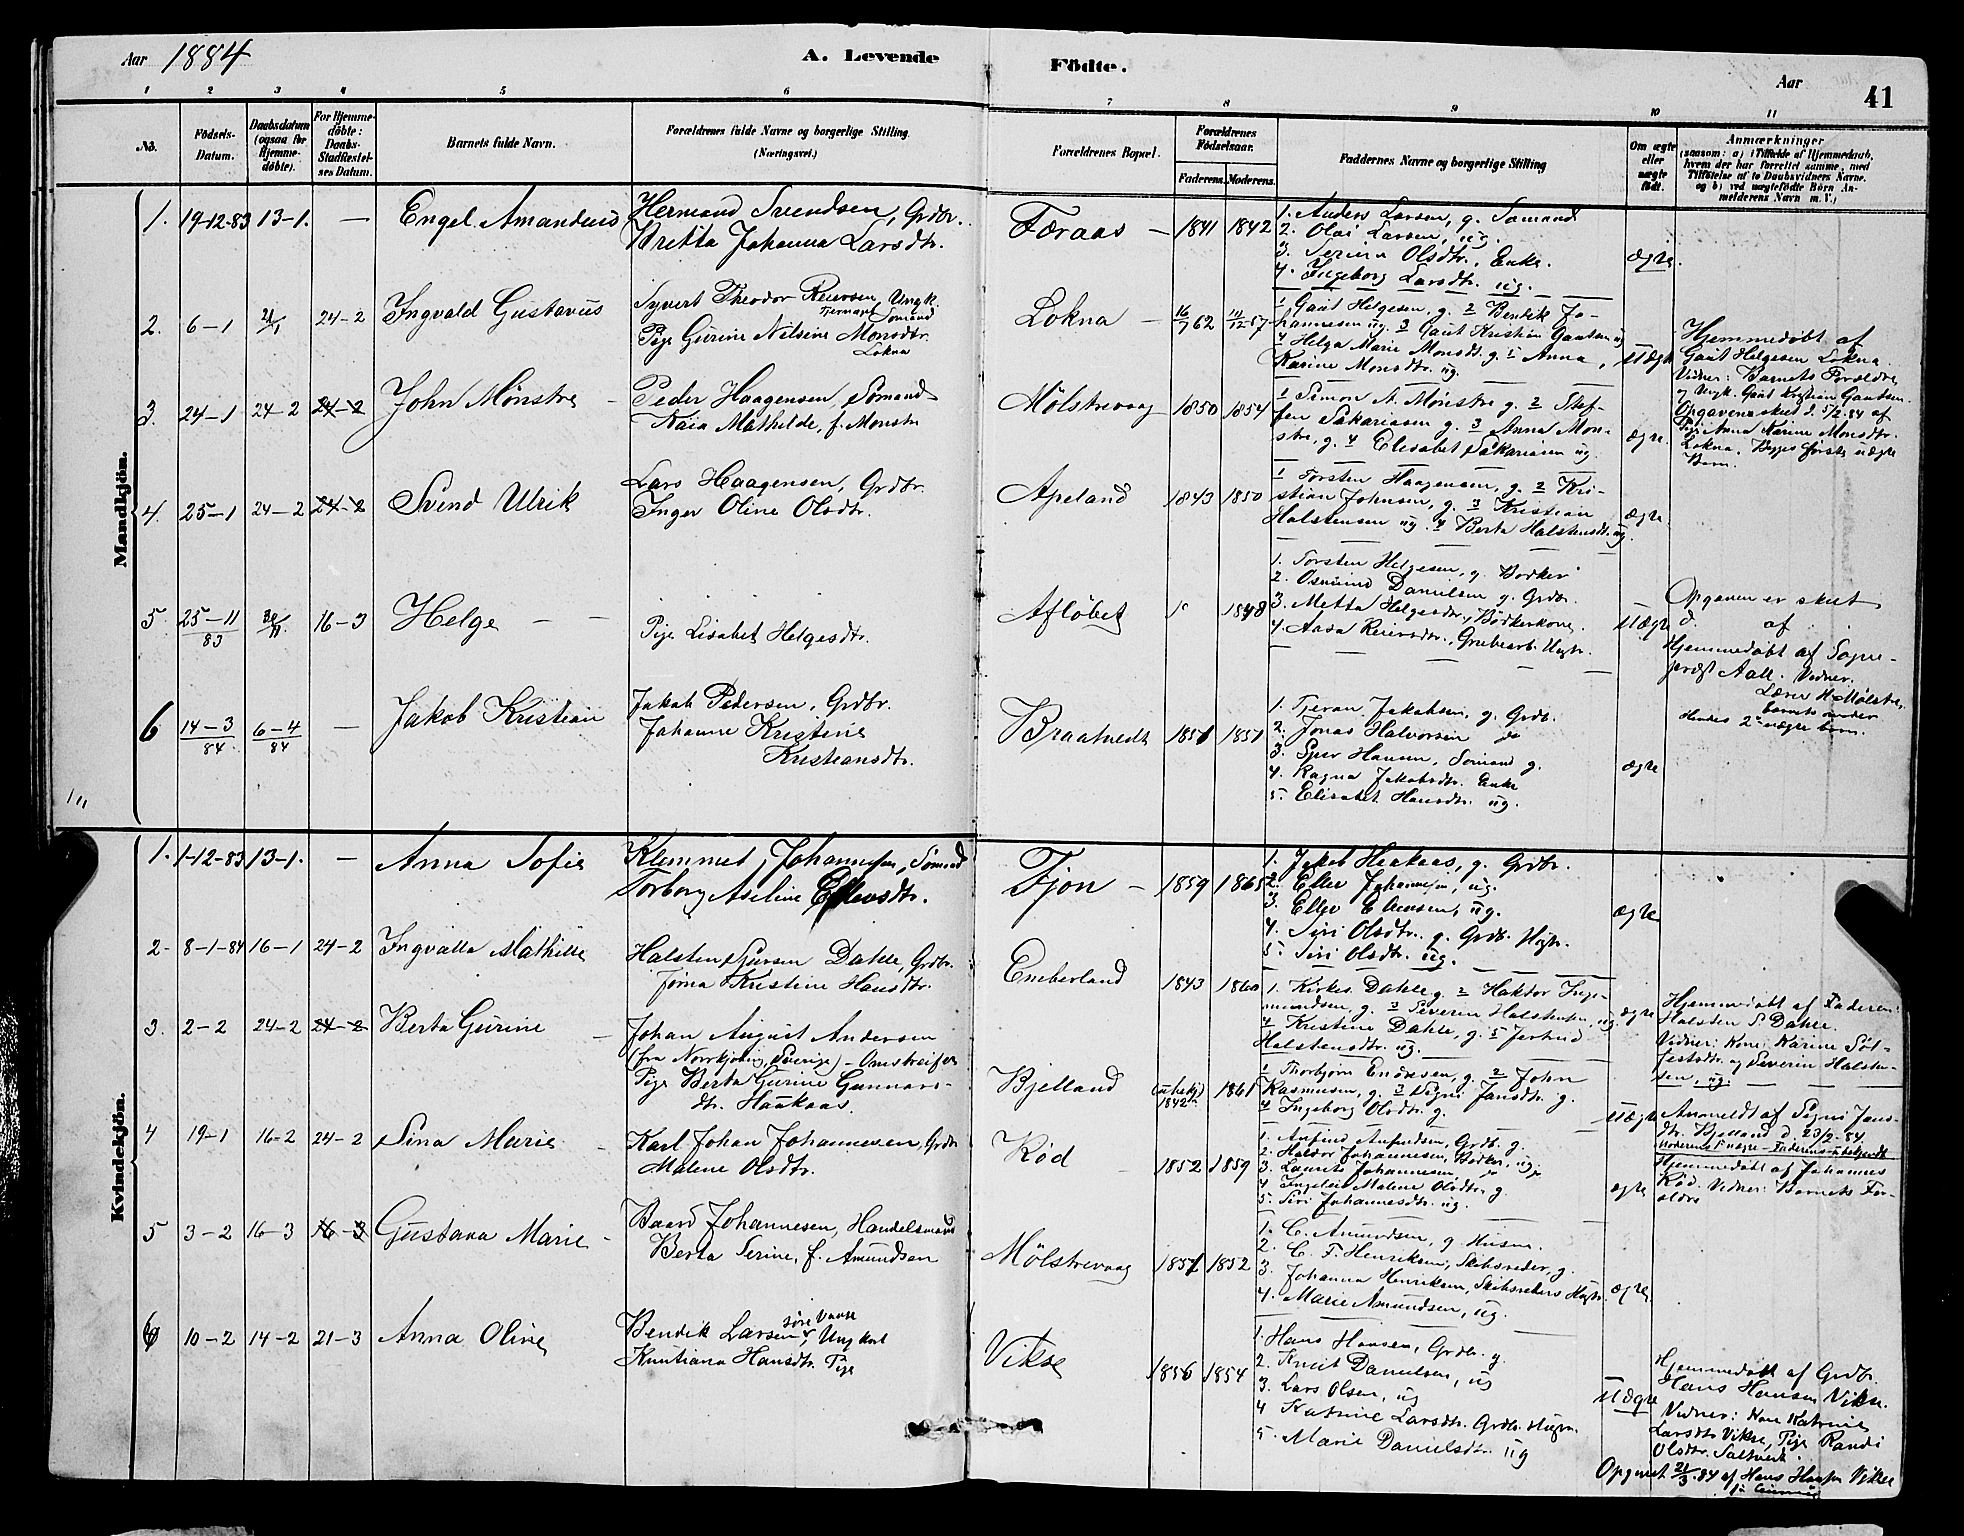 Aar 1884
A. Levende Födte.
Aar
41
1 2 3 4 5 6 7 8 9 10 11
No.
Födsels-
Datum.
Daabsdatum
(ogsaa for
Hjemme-
döbte).
For Hjemme-
döbte:
Daabs-
Stadfæstel-
ses Datum.
Barnets fulde Navn.
Forældrenes fulde Navne og borgerlige Stilling
(Næringsvei.)
Forældrenes Bopæl.
Forældrenes
Födselsaar.
Faderens. Moderens.
Faddernes Navne og borgerlige Stilling
Om ægte
eller
uægte
födt.
Anmærkninger
(saasom: a) i Tilfælde af Hjemmedaab,
hvem der har forrettet samme, med
Tilföielse af to Daabsvidners Navne.
og b) ved uægtefödte Börn An-
melderens Navn m. V.)
Mandkjön.
1. 19-12-83 13-1. — Engel Amandus
Hermand Svendsen, Grdbr.
Bretta Johanna Larsdtr.
Færaas — 1841 1842
1. Anders Larsen, g. Sømand
2. Olai Larsen, ug.
3. Serina Olsdtr. Enke.
4. Ingeborg Larsdtr. ug.
ægte.
2. 6-1 24-2 Ingvald Gustavus
Syvert Theodor Reiersen, Ungk.
Sømand
Pige Gurine Nilsine Monsdtr.
Lokna
Lokna — 16/7 62
1 Gaut Helgesen, g. 2 Bendik Jo-
hannesen ug. 3 Gaut Kristian Gautsen ug
4 Helga Marie Monsdt. g. 5 Anna
Karine Monsdtr. ug.
Uægte
Hjemmedøbt af
Gaut Helgesen Lokna
Vidner: Barnets Forældre
og Ungk. Gaut Kristian Gautsen.
Opgaven skeet d. 5/2 84 af
Pige Anna Karine Monsdtr.
Lokna. Begges første uægte
Barn.
3. 24-1 24-2 24-2 John Mønstre —
Peder Haagensen, Sømand
Kaia Mathilde, f. Monstre
Mølstrevaag 1850 1854
1 Simon A. Mønstre g. 2 Stef-
fen Sakariasen g. 3 Anna Møn-
stre, g. 4 Elisabet Sakariasen ug.
ægte.
4. 25-1 24-2 24-2 Svend Ulrik
Lars Haagensen, Grdbr.
Inger Oline Olsdtr.
Apeland 1843 1850
1 Torsten Haagensen, g. 2 Kri-
stian Johnsen, g. 3 Kristian
Halstensen ug. 4 Berta Halstensdt. ug.
ægte.
5. 25-11 83 16-3 Helge — —
Pige Lisabet Helgesdtr.
Afløbet 1848
1. Torsten Helgesen, g. Bødker
2. Osmund Danielsen g. Grdbr.
3. Metta Helgesdtr., Bødkerkone.
4. Aasa Reiersdtr., Grubearb. Hustr.
Uægte
Opgaven er skeet
d. af
Hjemmedøbt af Sogne-
præst Aall. Vidner:
Lærer H. Mølstre,
barnets moder
Hendes 2det uægte barn.
6 14-3 84 6-4 84 — Jakob Kristian
Jakob Pedersen, Grdbr.
Johanne Kristine
Kristiansdtr.
Braatvedt 1851 1851
1. Tjeran Jakobsen, g. Grdb.
2. Jonas Halvorsen do
3. Sjur Hansen, Sømand g.
4. Ragna Jakobsdtr. Enke
5. Elisabet Hansdtr. ug.
ægte
Kvindekjön.
1. 1-12-83 13-1. — Anna Sofie
Klemmet Johannesen, Sømand
Torborg Aseline Ellevsdtr.
Fjon — 1859 1865
1. Jakob Haakaas, g. Grdbr.
2. Ellev Johannesen, ug.
3. Ellev Ellevsen, ug.
4. Siri Olsdtr. g. Grdb. Hustr.
5. Siri Olsdtr. ug.
ægte
2. 8-1-84 16-1 24-2 Ingvalla Mathilde
Halsten Sjursen Dahle, Grdbr.
Jorna Kristine Hansdtr.
Emberland 1843 1860
1. Kirkes. Dahle g. 2 Haktor Inge-
mundsen, g. 3 Severin Halstensen, ug.
4 Kristine Dahle, g. 5 Jertrud
Halstensdtr. ug.
ægte
Hjemmedøbt af Faderen:
Halsten S. Dahle.
Vidner: Kone Karine Søl-
festsdtr. og Severin Halsten-
sen, ug.
3. 2-2 24-2 24-2 Berta Gurine —
Johan August Andersen
(fra Norrkjøbing, Sverige) — Omstreifer
Pige Berta Gurine Gunnars-
dtr. Haakaas.
Bjelland (ubekj) 1842 1861
1 Thorbjørn Endresen, g. 2 John
Rasmussen, g. 3 Signi Jansdtr. g.
4 Ingeborg Olsdtr. g.
Uægte
Anmeldt af Signi Jans-
dtr. Bjelland d. 23/2-84.
Moderens 1 uægte — Faderens ubekjendt
4 19-1 16-2 24-2 Sina Marie —
Karl Johan Johannesen, Grdbr
Malene Olsdtr.
Rød — 1852 1859
1. Anfind Anfindsen, Grdb. g.
2. Haldor Johannesen, Bødker, ug.
3. Laurits Johannesen do
4. Ingeleiv Malene Olsdtr. g.
5. Siri Johannesdtr. ug.
ægte
Hjemmedøbt af Johannes
Rød. Vidner: Barnets For-
ældre
5 3-2 16-3 16-3 Gustava Marie —
Baard Johannesen, Handelsmand
Berta Serine, f. Amundsen
Mølstrevaag 1851 1852
1. C. Amundsen, g. Husm.
2. C. F. Henriksen, Skibsreder, g.
3. Johanna Henriksen, Skibsreders Hustr.
4. Marie Amundsen, ug.
ægte.
6 10-2 14-2 21-3 Anna Oline
Bendik Larsen, Ungkarl
Knutiana Hansdtr. Pige
Vikse 1856 1854
1. Hans Hansen, Grdbr. g.
2. Knut Danielsen, ug
3. Lars Olsen, ug
4 Katrine Larsdtr. Grdbr. Hustr.
5. Marie Danielsdtr. ug
Uægte
Hjemmedøbt af Grdbr.
Hans Hansen Vikse.
Vidner: Kone Katrine
Larsdtr Vikse, Pige Randi
Olsdtr. Saltveit.
Opgivet 21/3.84 af Hans Hansen Vikse